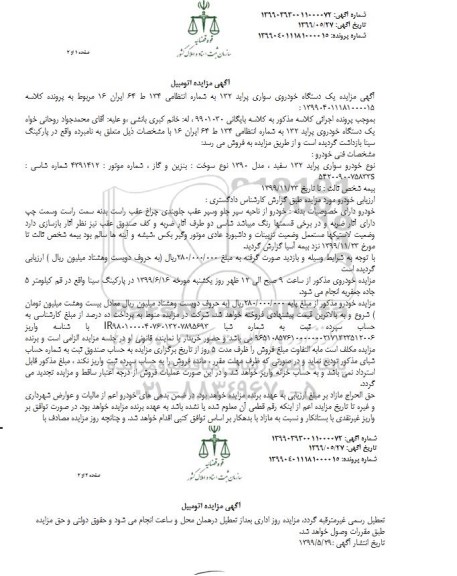 شماره آگهی: ۱۳۹۹۰۳۶۳۰۰۱۱۰۰۰۰۷۲
تاریخ آگهی: ۱۳۹۹/۰۵/۲۷
شماره پرونده: ۱۳۹۹۰۴۰۱۱۱۸۱۰۰۰۰۱۵
قوه قضاییه
سازمان ثبت اسناد و املاک کشور
صفحه ۱ از ۲
آگهی مزایده اتومبیل
آگهی مزایده یک دستگاه خودروی سواری پراید ۱۳۲ به شماره انتظامی ۱۳۴ ط ۶۴ ایران ۱۶ مربوط به پرونده کلاسه
۱۳۹۹۰۴۰۱۱۱۸۱۰۰۰۰۱۵ :
بموجب پرونده اجرائی کلاسه مذکور به کلاسه بایگانی ۹۹۰۱۰۳۰ ، له: خانم کبری باتشی ،و علیه: آقای محمدجواد روحانی خواه
یک دستگاه خودروی پراید ۱۳۲ به شماره انتظامی ۱۳۴ ط ۶۴ ایران ۱۶ با مشخصات ذیل متعلق به نامبرده واقع در پارکینگ
سینا بازداشت گردیده است و از طریق مزایده به فروش می رسد:
مشخصات فنی خودرو :
نوع خودرو سواری پراید ۱۳۲ سفید ، مدل ۱۳۹۰ نوع سوخت : بنزین و گاز ، شماره موتور : ۴۳۹۱۴۱۲ شماره شاسی :
۵۴۲۰۰۹۰۰۷۵۸۳۲۵
بیمه شخص ثالث : تا تاریخ ۱۳۹۹/۱۱/۲۳
ارزیابی خودرو مورد مزایده طبق گزارش کارشناس دادگستری :
خودرو دارای خصوصیات بدنه : خودرو از ناحیه سپر جلو وسپر عقب جلوبندی چراغ عقب راست بدنه سمت راست وسمت چپ
دارای آثار ضربه و در برخی قسمتها رنگ میباشد شاسی دو طرف آثار ضربه و کف صندوق عقب نیز نظر آثار بازسازی دارد
وضعیت لاستیکها مستعمل وضعیت تزیینات و داشبورد عادی موتور وگیر بکس شیشه و آینه ها سالم بود بیمه شخص ثالث تا
مورخ ۱۳۹۹/۱۱/۲۳ نزد بیمه آسیا گزارش گردید.
با توجه به شرایط وسیله و بازدید صورت گرفته به مبلغ ۲۸۰/۰۰۰/۰۰۰ریال (به حروف دویست وهشتاد میلیون ریال ) ارزیابی
گردیده است
مزایده خودروی مذکور از ساعت ۹ صبح الی ۱۲ ظهر روز یکشنبه مورخه ۱۳۹۹/۶/۱۶ در پارکینگ سینا واقع در قم کیلومتر ۵
جاده جعفریه انجام می شود.
مزایده خودرو مذکور از مبلغ پایه ۲۸۰/۰۰۰/۰۰۰ریال (به حروف دویست وهشتاد میلیون ریال معادل بیست وهشت میلیون تومان
) شروع و به بالاترین قیمت پیشنهادی فروخته خواهد شد. شرکت در مزایده منوط به پرداخت ده درصد از مبلغ کارشناسی به
حساب سپرده ثبت به شماره شبا
و حضور خریدار یا نماینده قانونی او در جلسه مزایده الزامی است و برنده
مزایده مکلف است مابه التفاوت مبلغ فروش را ظرف مدت ۵ روز از تاریخ برگزاری مزایده به حساب صندوق ثبت به شماره حساب
شبای مذکور تودیع نماید و در صورتی که ظرف مهلت مقرر ، مانده فروش را به حساب سپرده ثبت واریز نکند ، مبلغ مذکور قابل
استرداد نمی باشد و به حساب خزانه واریز خواهد شد و در این صورت عملیات فروش از درجه اعتبار ساقط و مزایده تجدید می
گردد.
حق الحراج مازاد بر مبلغ ارزیابی به عهده برنده مزایده خواهد بود. در ضمن بدهی های خودرو اعم از مالیات و عوارض شهرداری
و غیره تا تاریخ مزایده اعم از اینکه رقم قطعی آن معلوم شده یا نشده باشد به عهده برنده مزایده خواهد بود. در صورت توافق بر
واریز غیرنقدی با بستانکار و نسبت به مازاد با بدهکار بر اساس توافق کتبی اقدام خواهد شد. و چنانچه روز مزایده مصادف با
شماره آگهی: ۱۳۹۹۰۳۶۳۰۰۱۱۰۰۰۰۷۲
تاریخ آگهی: ۱۳۹۹/۰۵/۲۷
شماره پرونده: ۱۳۹۹۰۴۰۱۱۱۸۱۰۰۰۰۱۵
قوه قضاییه
سازمان ثبت اسناد و املاک کشور
صفحه ۲ از ۲
آگهی مزایده اتومبیل
تعطیل رسمی غیرمترقبه گردد، مزایده روز اداری بعداز تعطیل درهمان محل و ساعت انجام می شود و حقوق دولتی و حق مزایده
طبق مقررات وصول خواهد شد.
تاریخ انتشار آگهی :۱۳۹۹/۵/۲۹